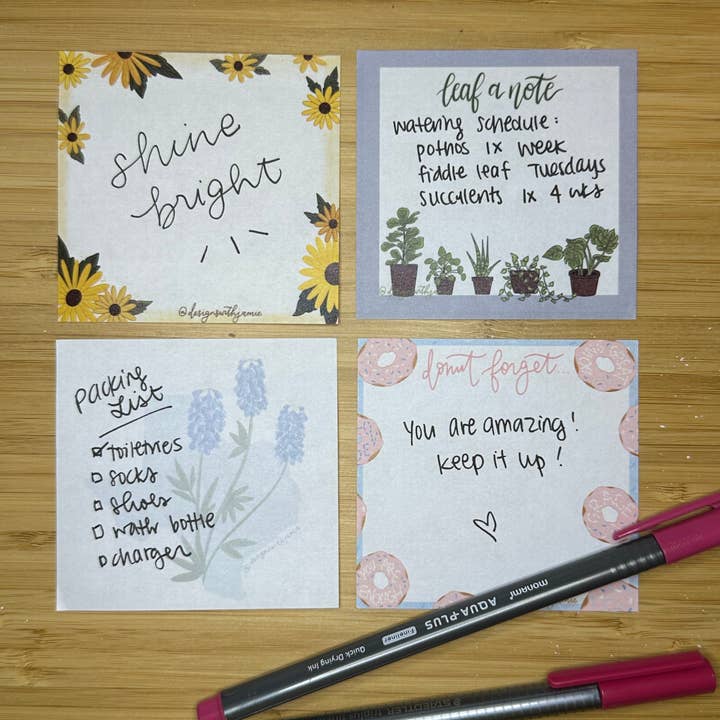 shine
bright
@designswithjamie
leaf a note
watering schedule:
pothos 1x week
fiddle leaf Tuesdays
succulents 1x 4 wks
packing
List
toiletries
socks
shoes
watr bottle
charger
@designswithjamie
donut forget...
You are amazing!
keep it up!
monami AQUA-PLUS Fineliner
Quick Drying Ink
STAEDTLER triplus